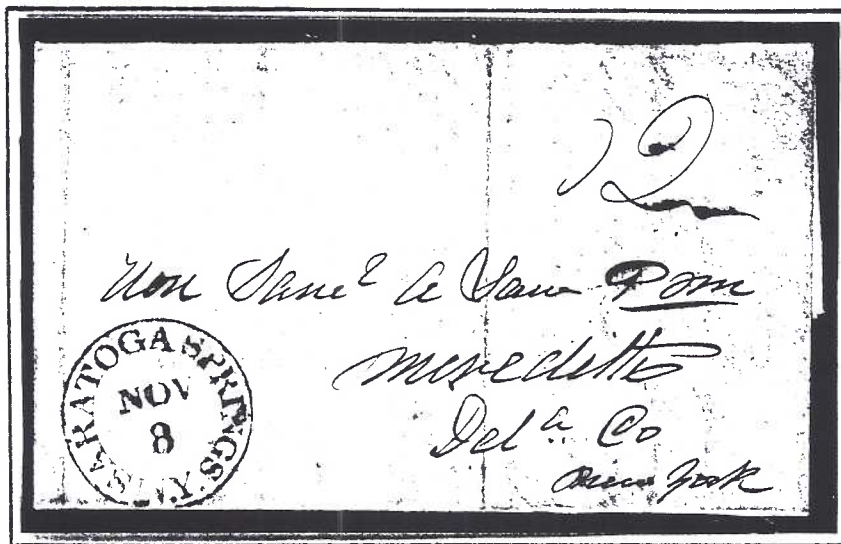 12
Hon Saml A Law PM
Meredith
Dela Co
New York
SARATOGA SPRINGS. N.Y.
NOV
8